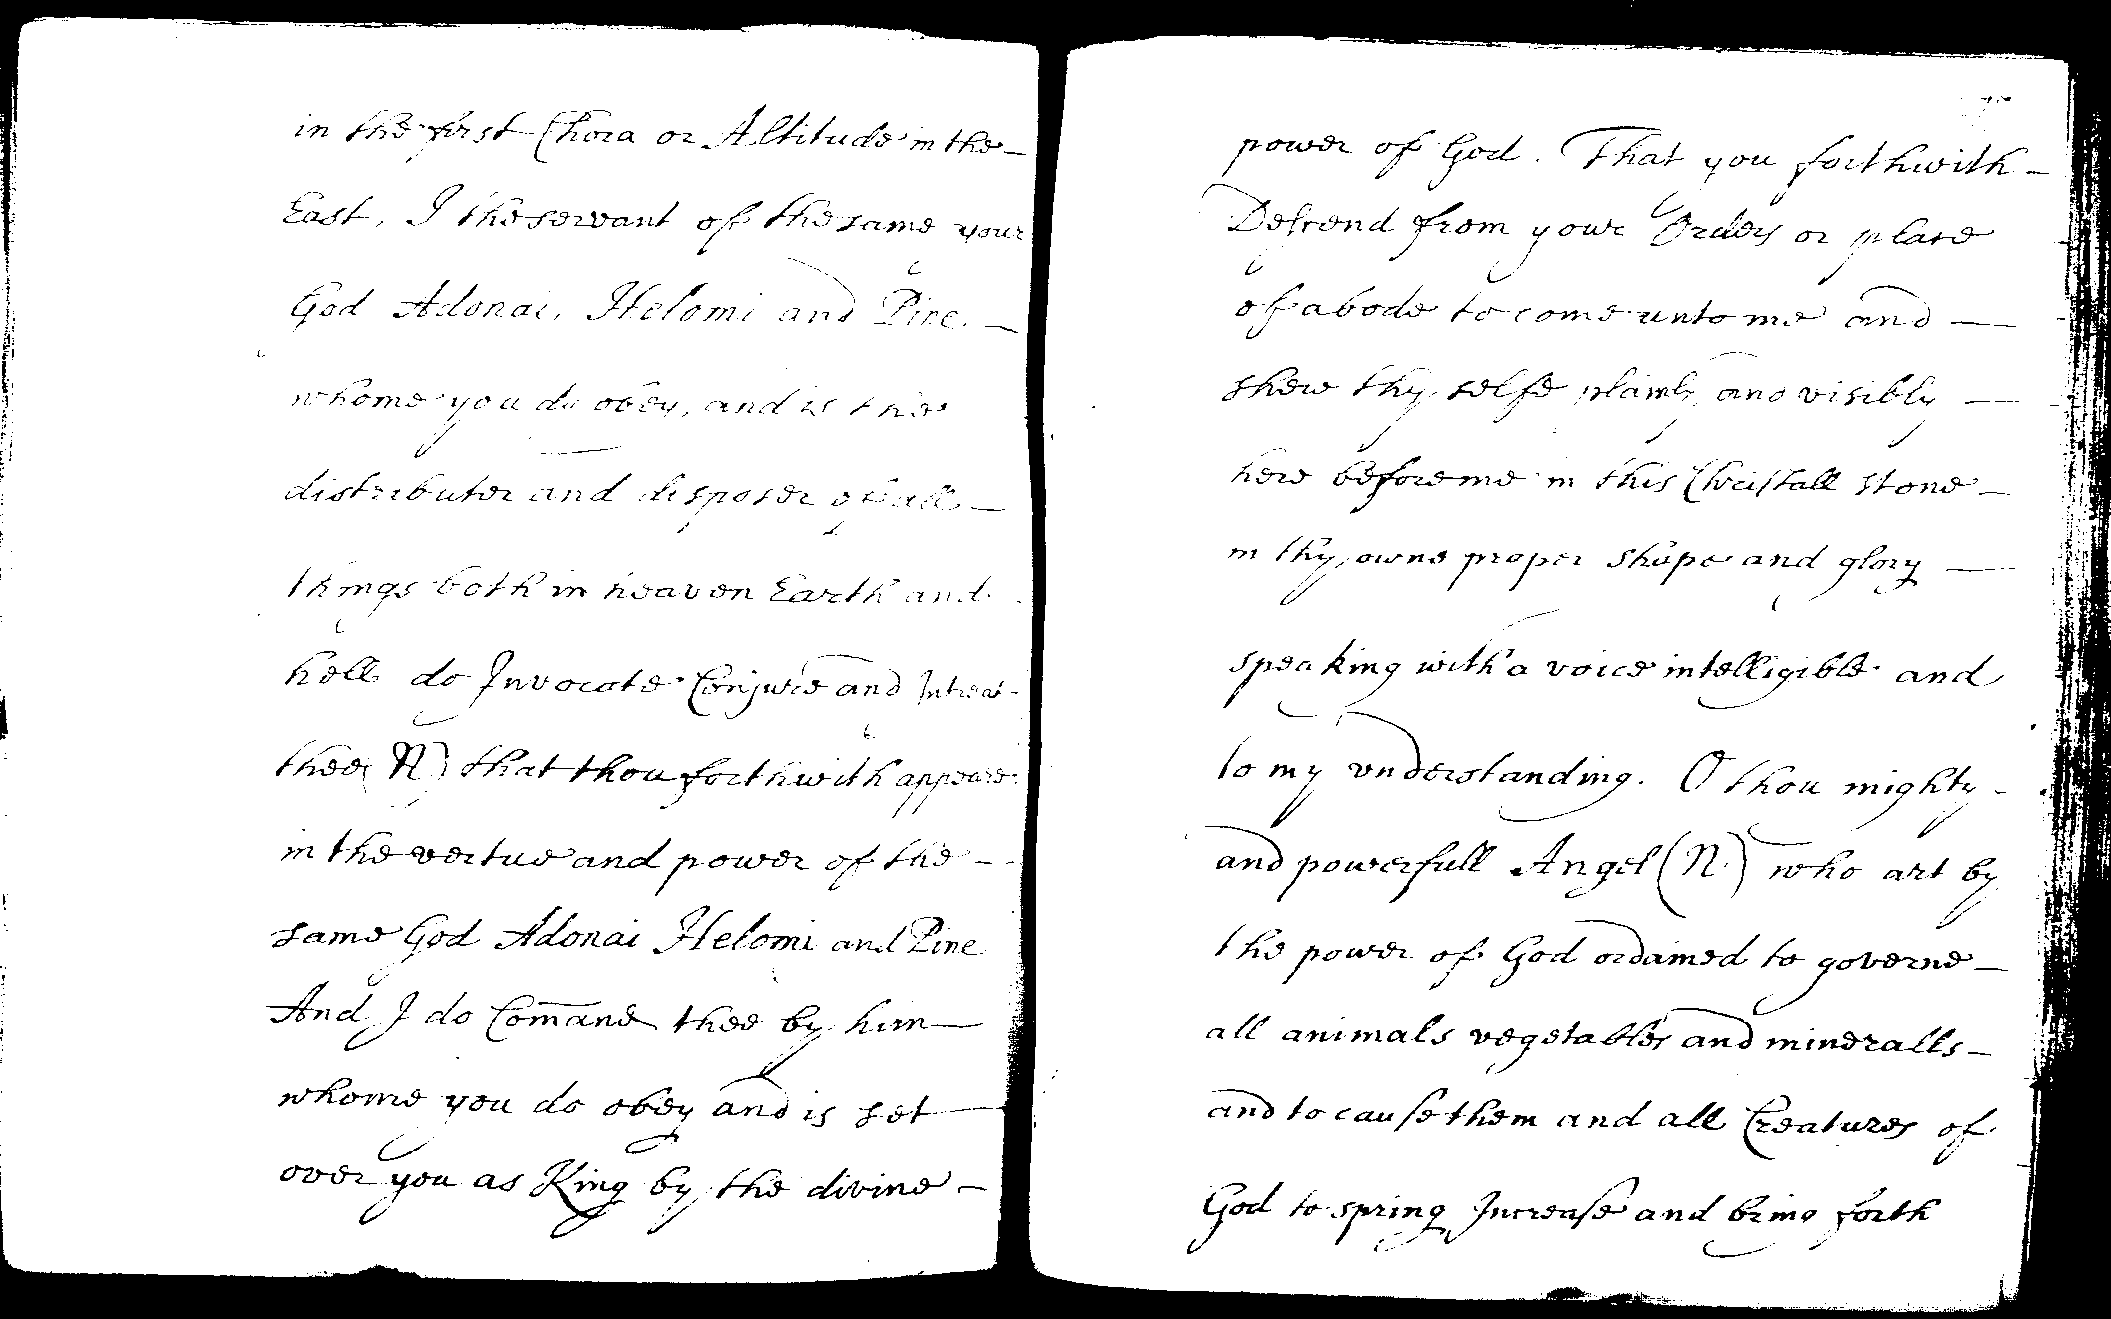 in the first Chora or Altitude in the —
East, I the servant of the same your
God Adonai, Helomi and Pine, —
whome you do obey, and is the
distributer and disposer of all —
things both in heaven Earth and
hell do Invocate Conjure and Intreat
thee (N) that thou forthwith appeare
in the vertue and power of the —
same God Adonai Helomi and Pine
And I do Com̄and thee by him —
whome you do obey and is set
over you as King by the divine —
power of God. That you forthwith —
Descend from your Orders or place
of abode to come unto me and —
shew thy selfe plainly and visibly —
here before me in this Christall stone —
in thy owne proper shape and glory —
speaking with a voice intelligible and
to my vnderstanding. O thou mighty —
and powerfull Angel (N) who art by
the power of God ordained to governe —
all animals vegetables and mineralls —
and to cause them and all Creatures of
God to spring Increase and bring forth